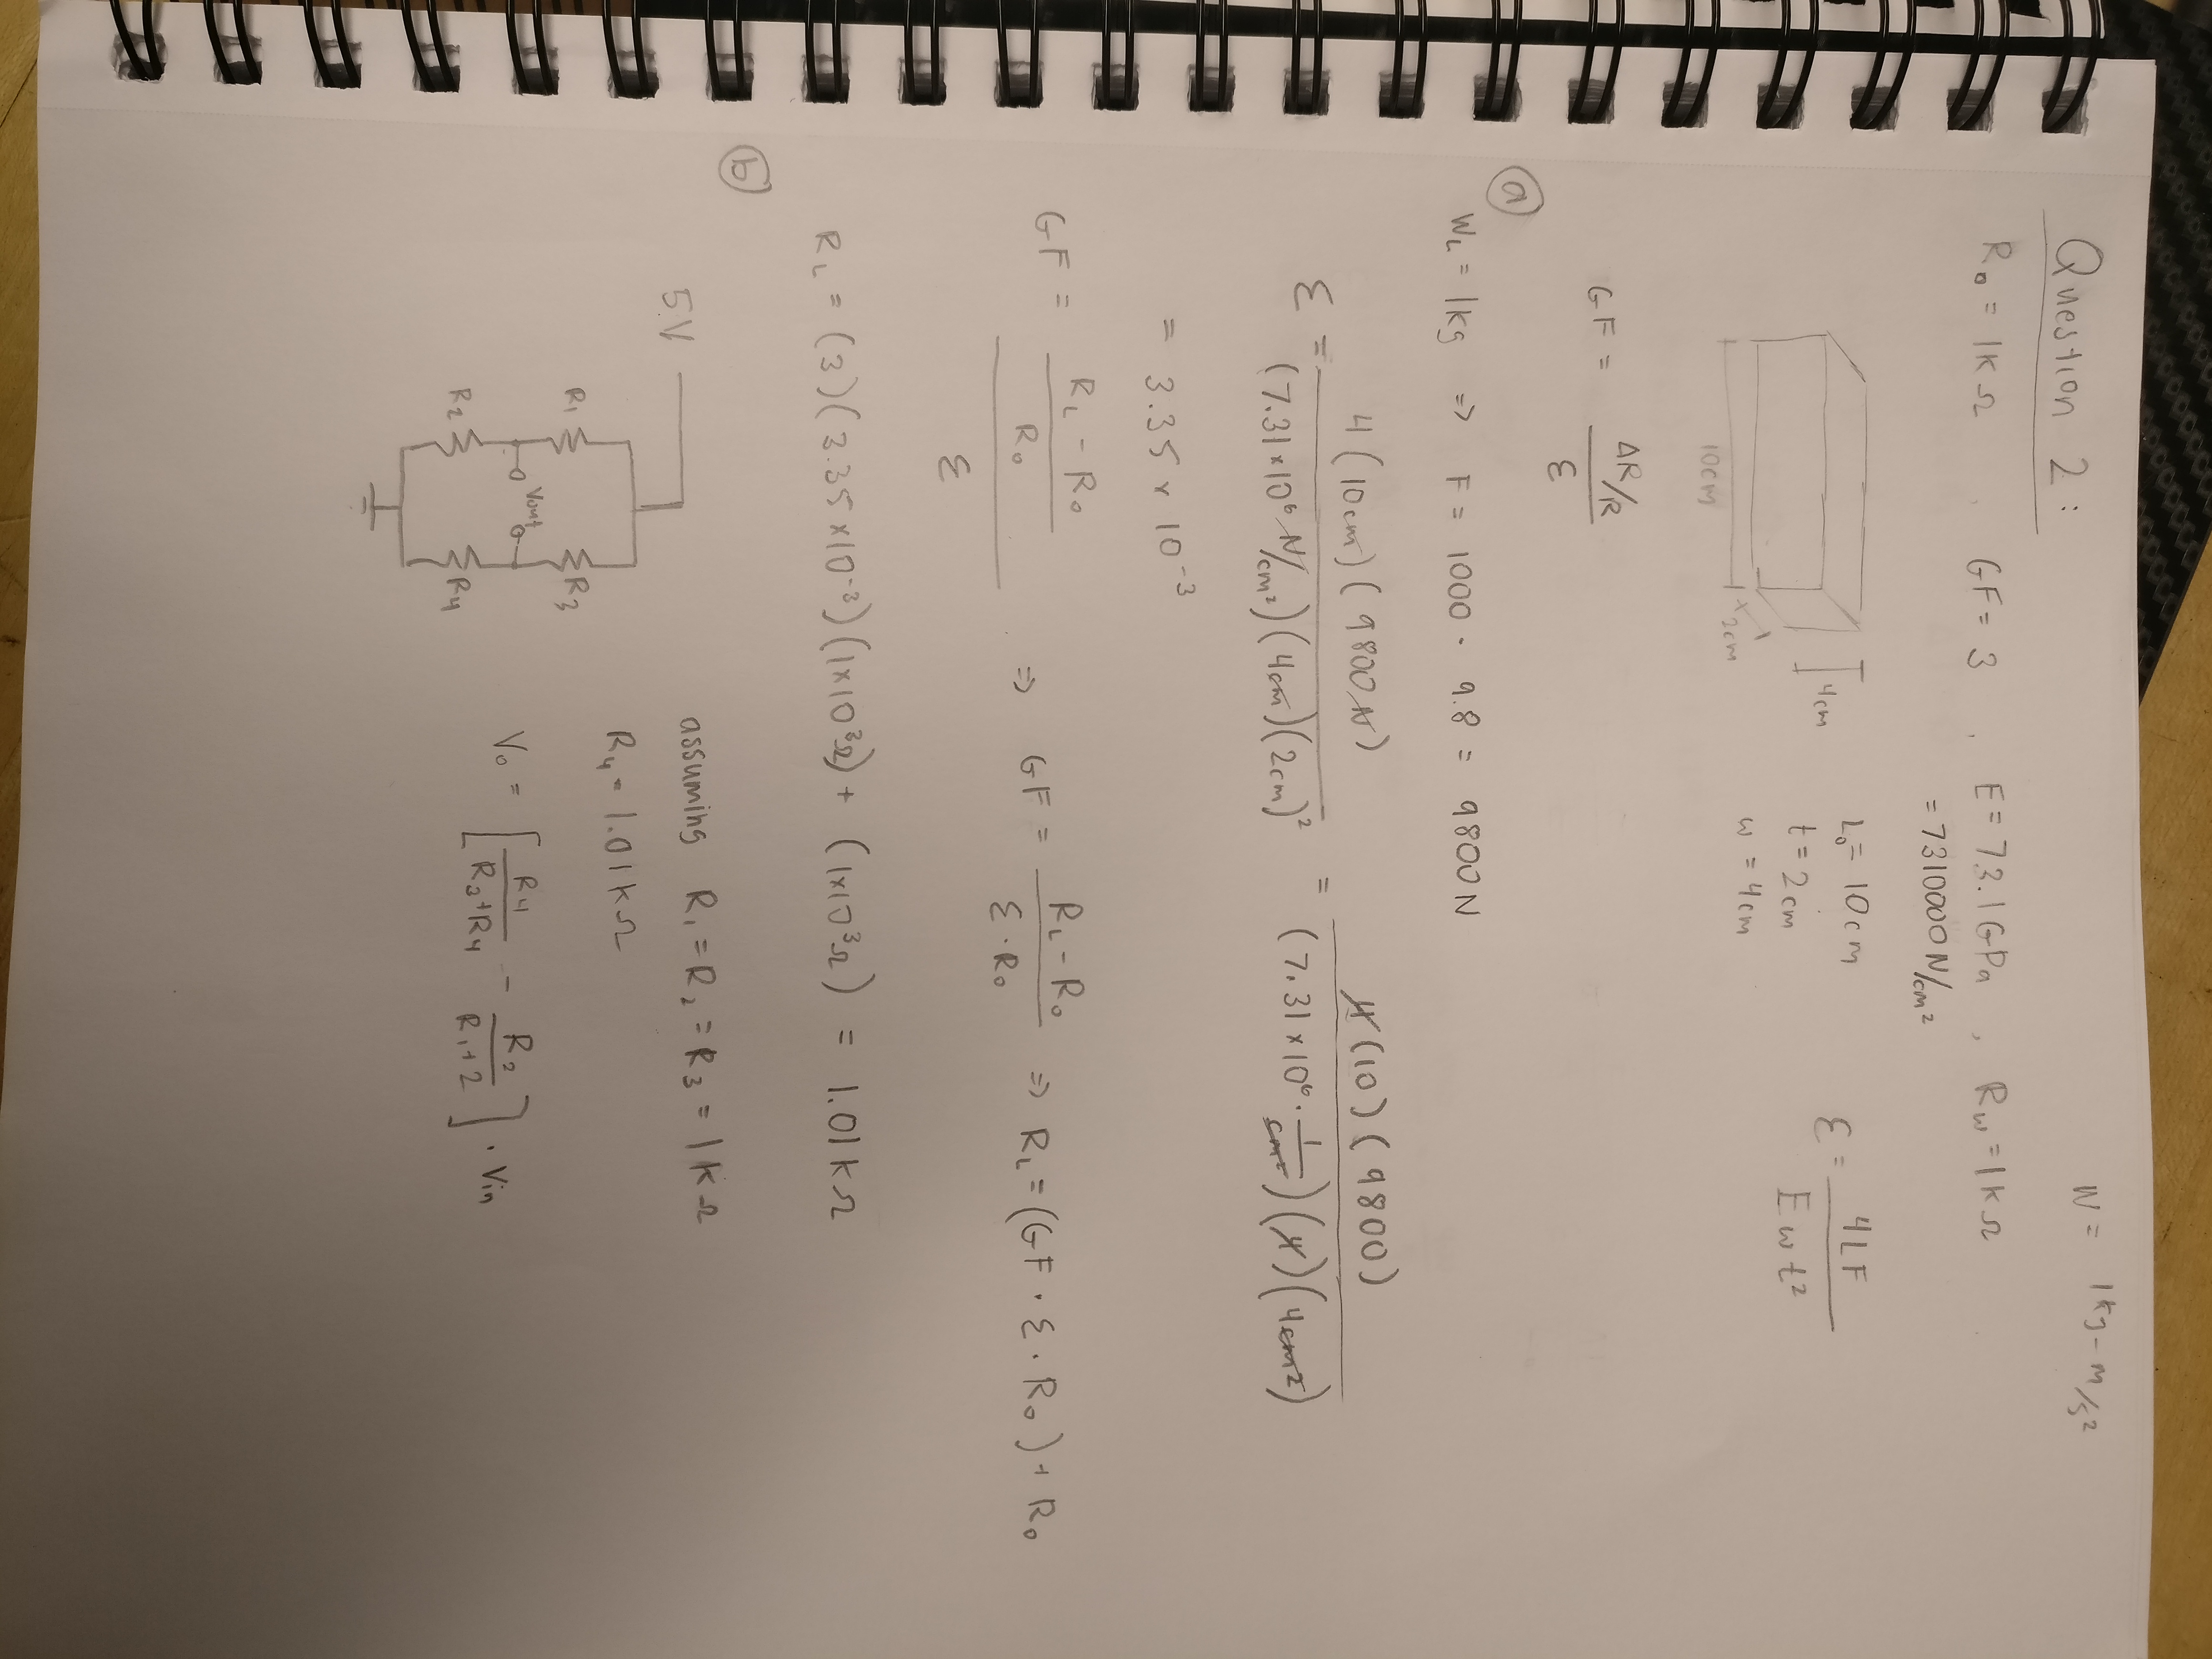 Question 2 :
W = 1kg-m/s²
R₀ = 1KΩ , GF = 3 , E = 73.1GPa , Rw = 1KΩ
= 7310000 N/cm²
4cm
2cm
10cm
L₀ = 10cm
t = 2cm
w = 4cm
ε = 4LF / Ewt²
GF = ΔR/R / ε
(a)
W_L = 1kg ⇒ F = 1000 · 9.8 = 9800N
ε = 4(10cm)(9800N) / (7.31×10⁶ N/cm²)(4cm)(2cm)² = 4(10)(9800) / (7.31×10⁶ · 1/cm²)(4)(4cm²)
= 3.35 × 10⁻³
GF = (R_L - R₀ / R₀) / ε ⇒ GF = R_L - R₀ / ε · R₀ ⇒ R_L = (GF · ε · R₀) + R₀
R_L = (3)(3.35×10⁻³)(1×10³Ω) + (1×10³Ω) = 1.01KΩ
(b)
5V
R₁
R₃
Vout
R₂
R₄
assuming R₁ = R₂ = R₃ = 1KΩ
R₄ = 1.01KΩ
V₀ = [R₄ / R₃+R₄ - R₂ / R₁+2] · Vin